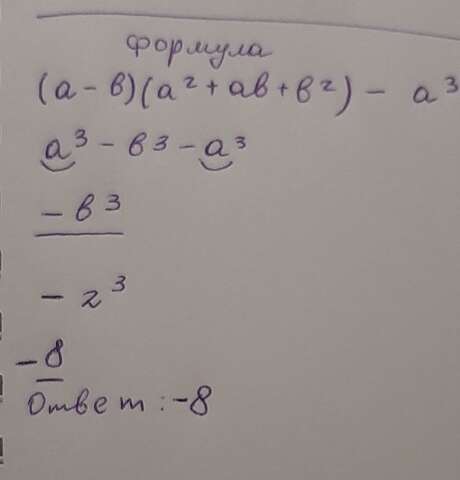 формула
(а - в)(а² + ав + в²) - а³
а³ - в³ - а³
- в³
- 2³
- 8
Ответ: -8